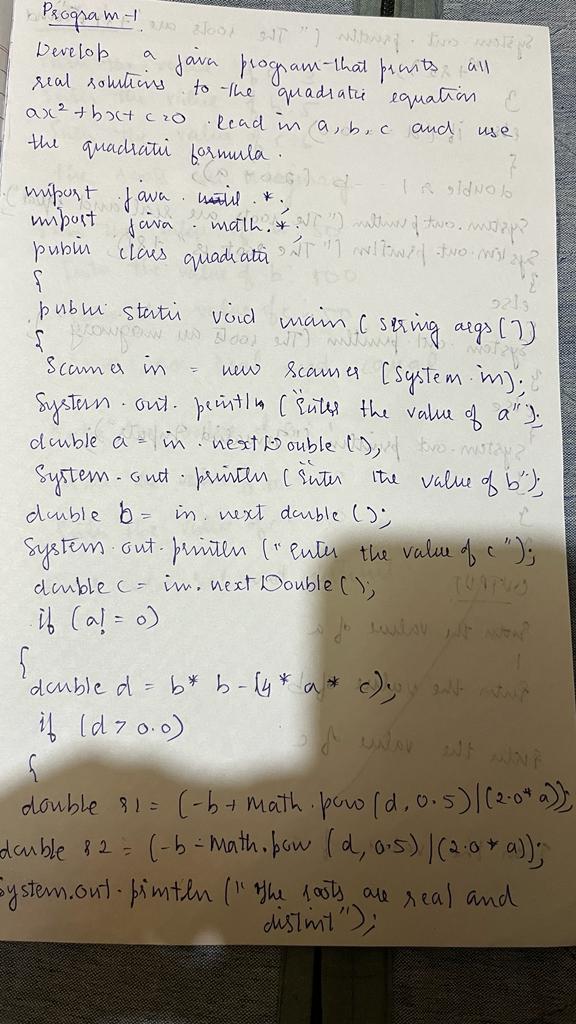 Program-1
Develop a java program that prints all
real solutions to the quadratic equation
ax² + bx + c = 0. Read in a, b, c and use
the quadratic formula.
import java.util.*;
import java.math.*;
public class quadratic
{
public static void main (String args[])
{
Scanner in = new Scanner (System.in);
System.out.println ("Enter the value of a");
double a = in.nextDouble();
System.out.println ("Enter the value of b");
double b = in.next double ();
System.out.println ("Enter the value of c");
double c = in.nextDouble();
if (a! = 0)
{
double d = b * b - (4 * a * c);
if (d > 0.0)
{
double r1 = (-b + Math.pow (d, 0.5) | (2.0 * a));
double r2 = (-b - Math.pow (d, 0.5) | (2.0 * a));
System.out.println ("The roots are real and
distint");